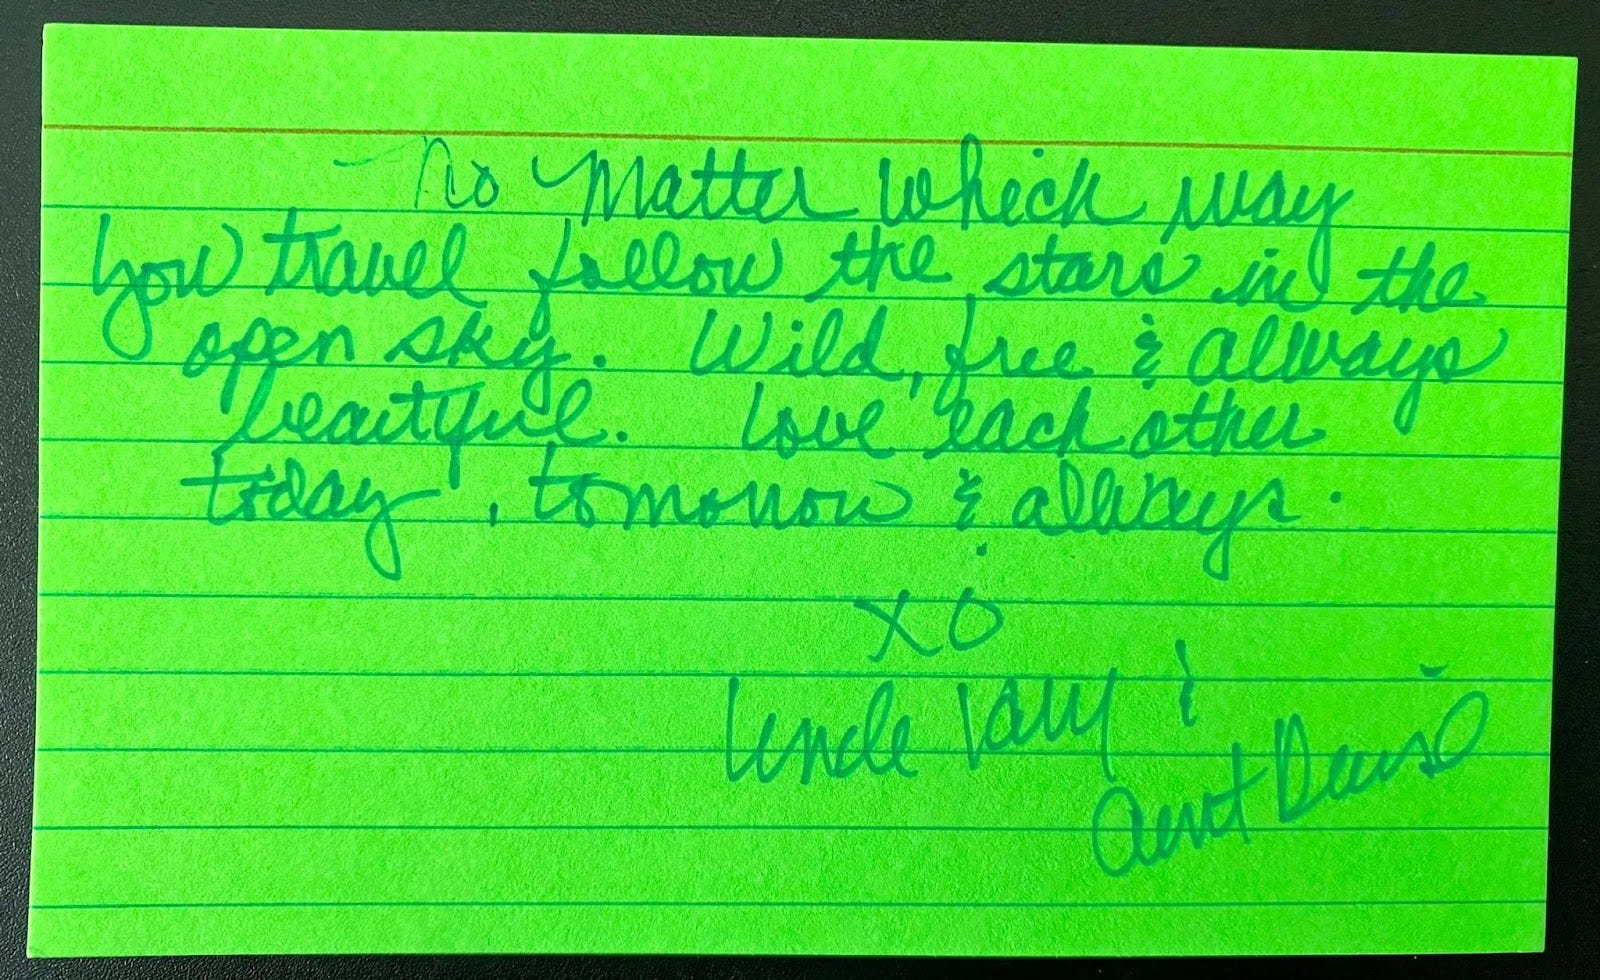 No matter which way
you travel follow the stars in the
open sky. Wild, free & always
beautiful. Love each other
today, tomorrow & always.
XO
Uncle &
Aunt Denise